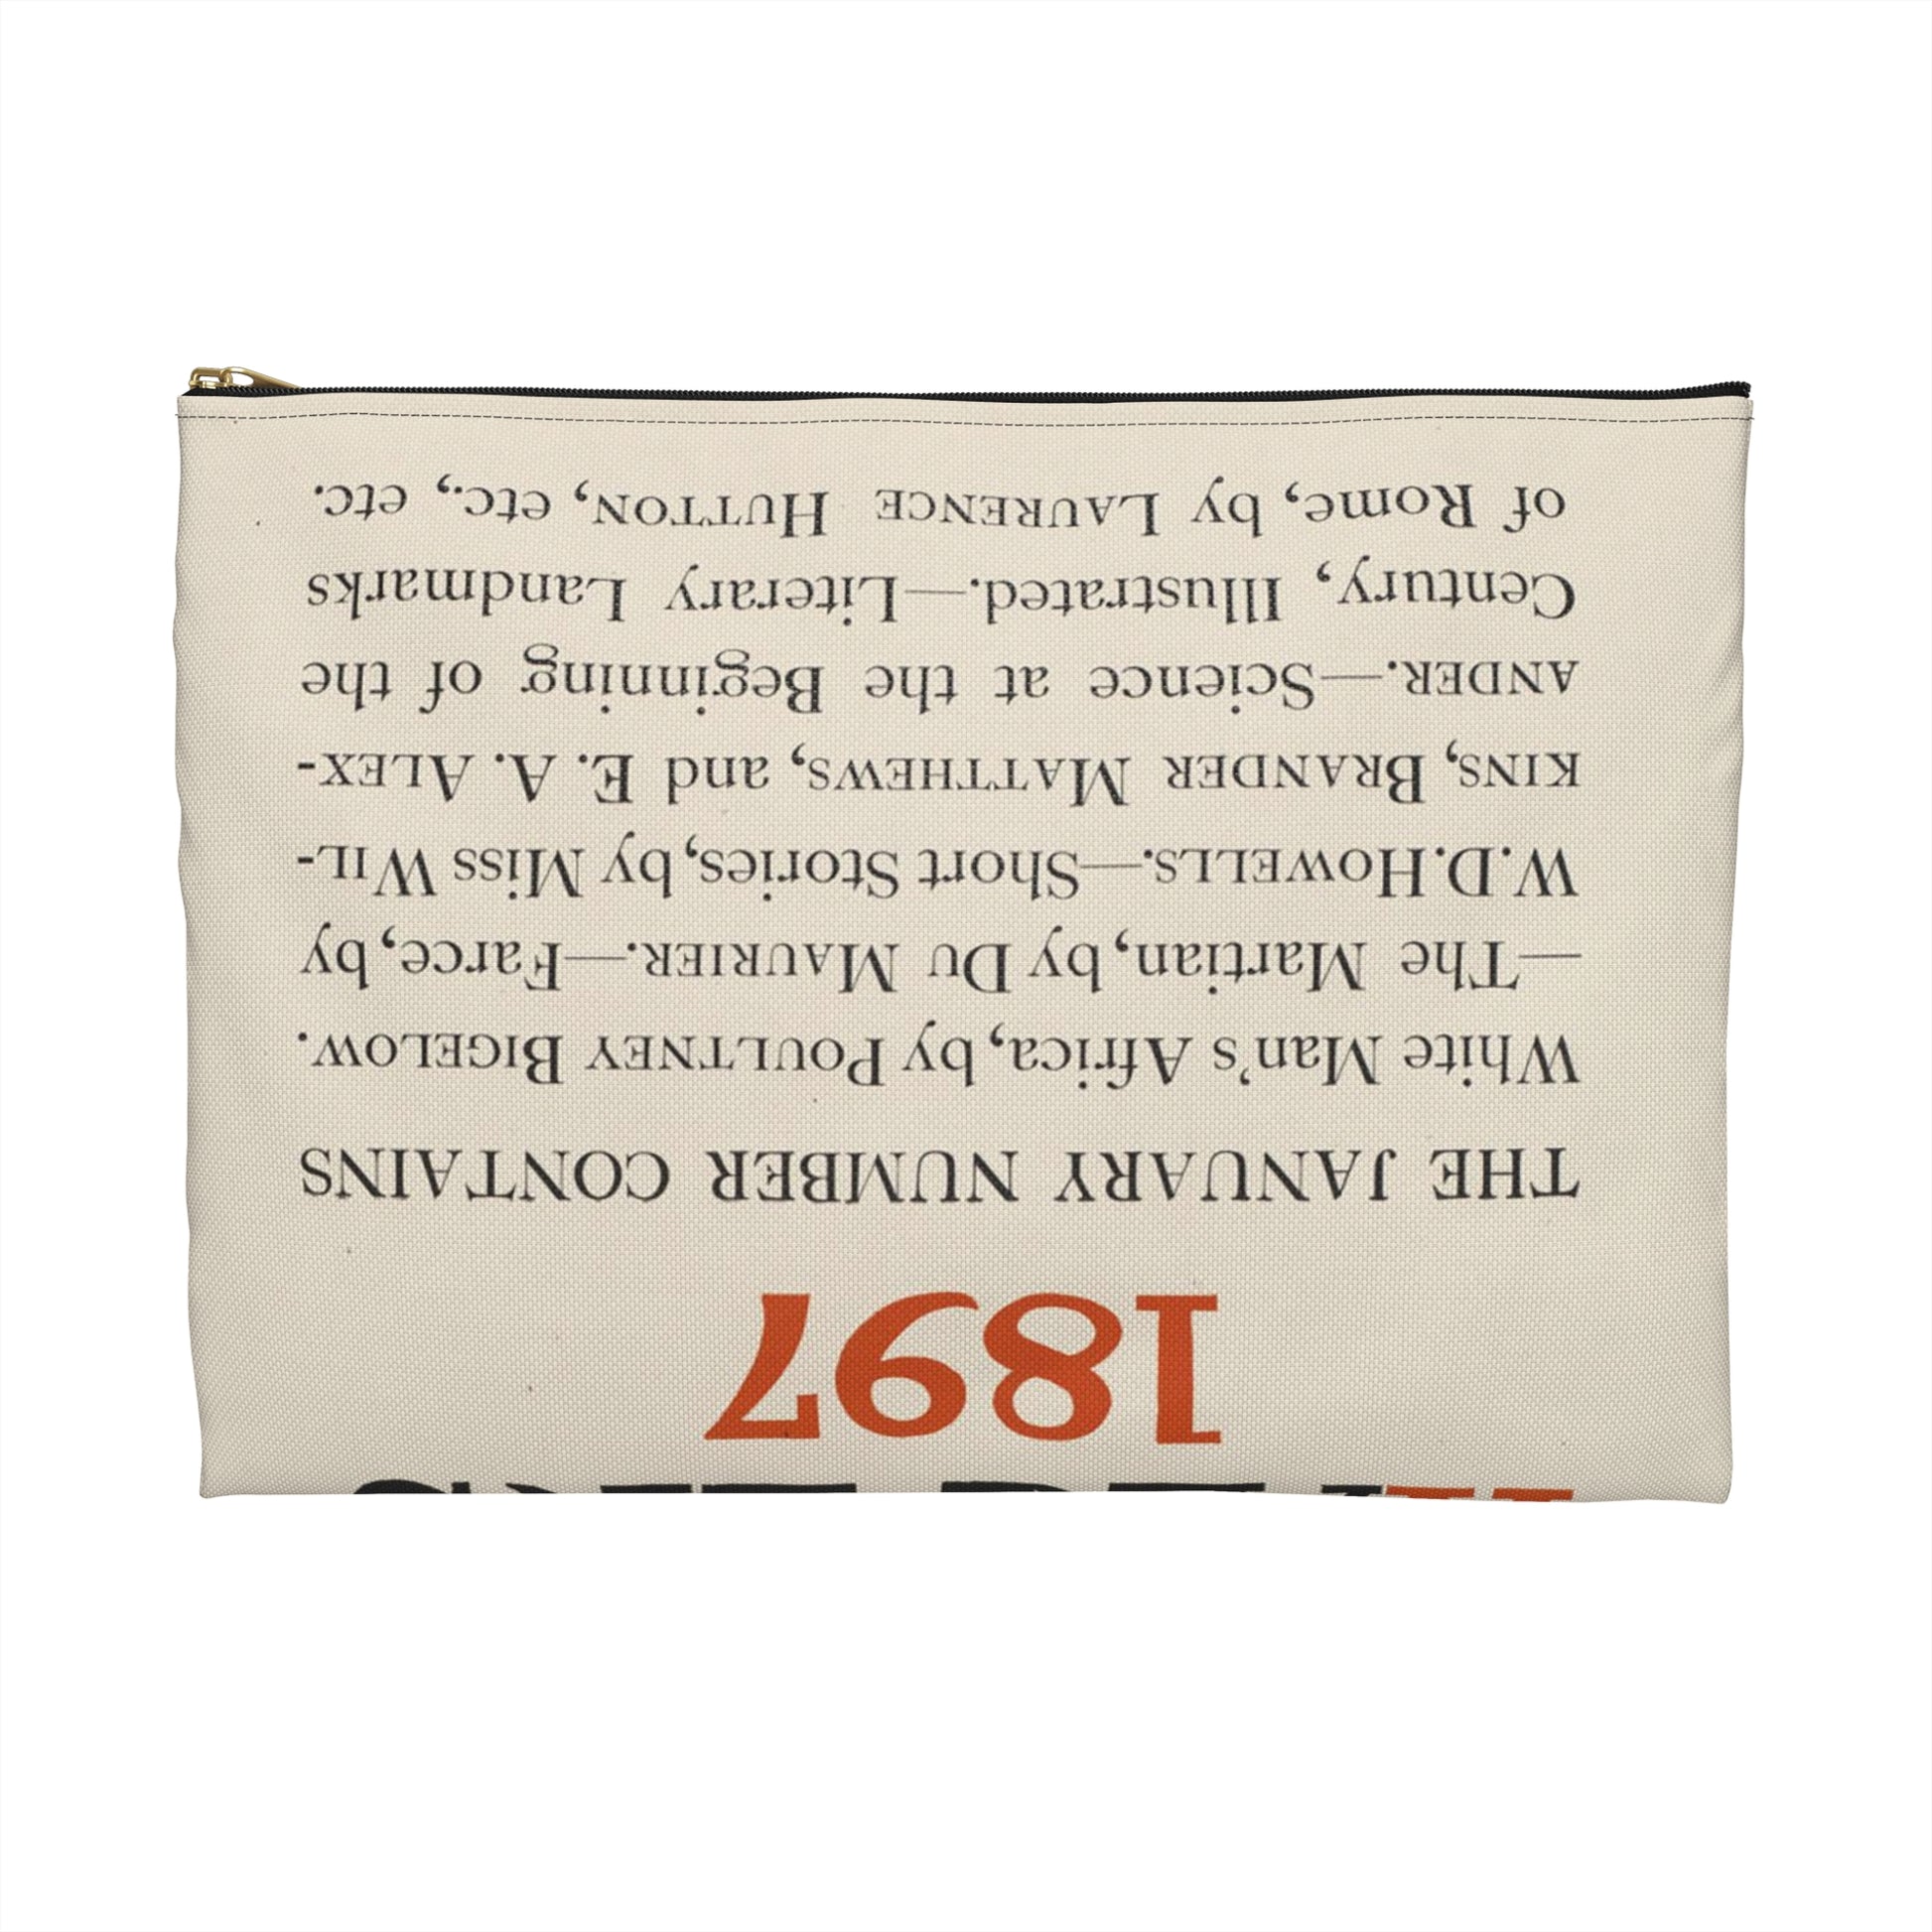 1897
THE JANUARY NUMBER CONTAINS
White Man's Africa, by Poultney Bigelow.
—The Martian, by Du Maurier.—Farce, by,
W.D. Howells.—Short Stories, by Miss Wil-
kins, Brander Matthews, and E. A. Alex-
ander.—Science at the Beginning of the
Century, Illustrated.—Literary Landmarks
of Rome, by Laurence Hutton, etc., etc.